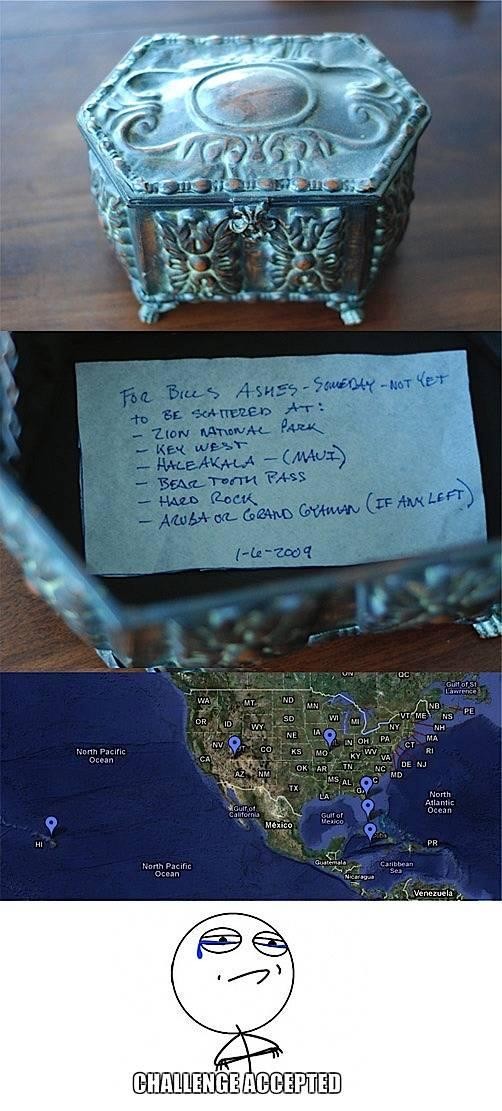 FOR BILL'S ASHES - SOMEDAY - NOT YET
TO BE SCATTERED AT:
- ZION NATIONAL PARK
- KEY WEST
- HALEAKALA - (MAUI)
- BEAR TOOTH PASS
- HARD ROCK
- ARUBA OR GRAND CAYMAN (IF ANY LEFT)
1-6-2009
ON QC
Gulf of St Lawrence
WA MT ND MN NB PE
OR ID WY SD WI MI VT ME NS
NH
NV NE IA IN OH PA NY MA
CT RI
North Pacific Ocean
CA CO KS MO KY WV VA DE NJ
MD
AZ NM OK AR TN NC
TX LA MS AL GA
North Atlantic Ocean
Gulf of California
Gulf of Mexico
México
HI
Cuba
PR
North Pacific Ocean
Guatemala
Nicaragua
Caribbean Sea
Venezuela
CHALLENGE ACCEPTED